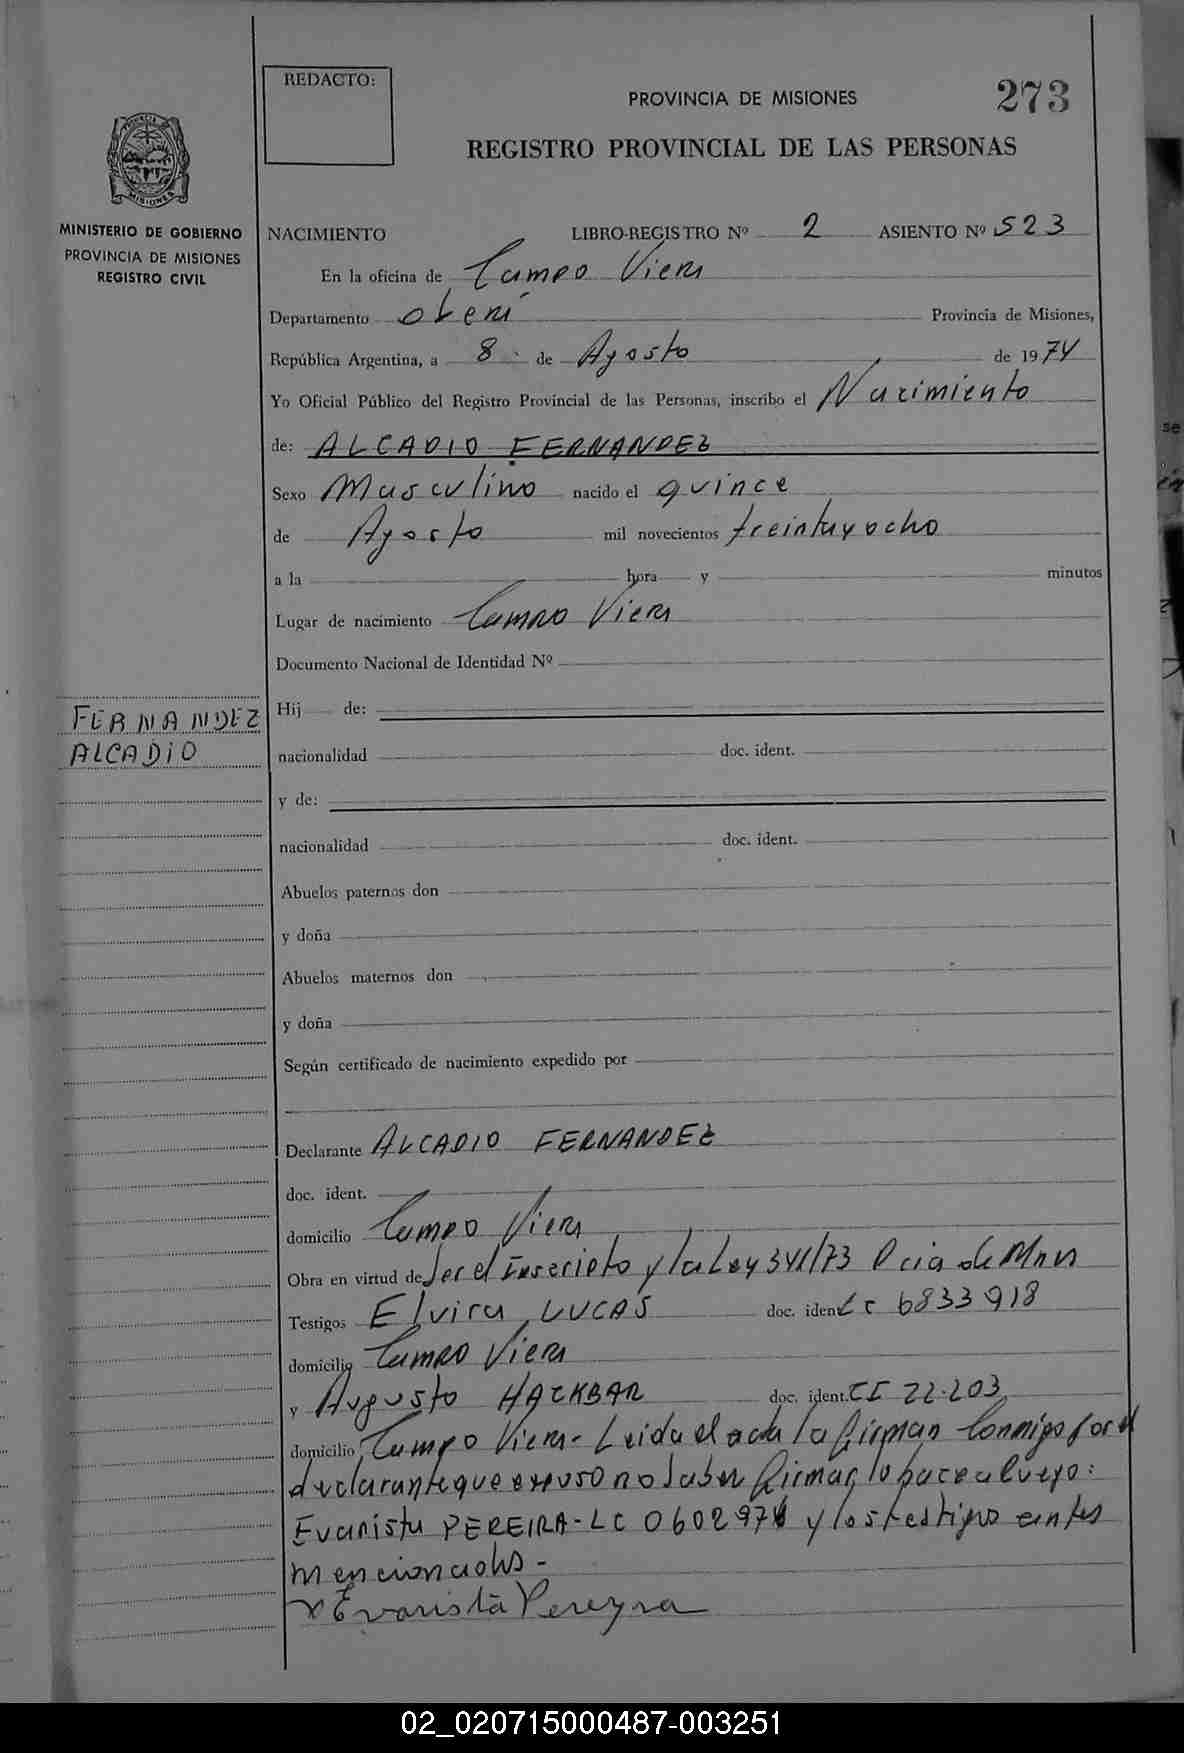 REDACTO:
PROVINCIA DE MISIONES
273
REGISTRO PROVINCIAL DE LAS PERSONAS
MINISTERIO DE GOBIERNO
PROVINCIA DE MISIONES
REGISTRO CIVIL
NACIMIENTO LIBRO-REGISTRO Nº 2 ASIENTO Nº 523
En la oficina de Campo Viera
Departamento Oberá Provincia de Misiones,
República Argentina, a 8 de Agosto de 1974
Yo Oficial Público del Registro Provincial de las Personas, inscribo el Nacimiento
de: ALCADIO FERNANDEZ
Sexo Masculino nacido el quince
de Agosto mil novecientos treintayocho
a la hora y minutos
Lugar de nacimiento Campo Viera
Documento Nacional de Identidad Nº
FERNANDEZ
ALCADIO
Hij de:
nacionalidad doc. ident.
y de:
nacionalidad doc. ident.
Abuelos paternos don
y doña
Abuelos maternos don
y doña
Según certificado de nacimiento expedido por
Declarante ALCADIO FERNANDEZ
doc. ident.
domicilio Campo Viera
Obra en virtud de Ser el Inscripto y la Ley 341/73 Pcia de Mnes
Testigos Elvira LUCAS doc. ident. LC 6833918
domicilio Campo Viera
y Augusto HACKBAR doc. ident. CI 22.203
domicilio Campo Viera - Leida el acta la firman Conmigo por el
declarante que expuso no saber firmar, lo hace a ruego:
Evarista PEREIRA - LC 0602974 y los testigos antes
mencionados -
Evarista Pereyra
02_020715000487-003251